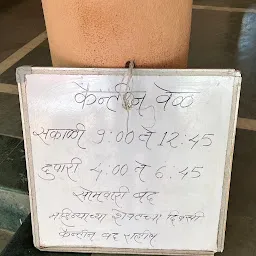 कॅन्टीन वेळ
सकाळी 9:00 ते 12:45
दुपारी 4:00 ते 6:45
सोमवारी बंद
महिन्याच्या शेवटच्या दिवशी
कॅन्टीन बंद राहील